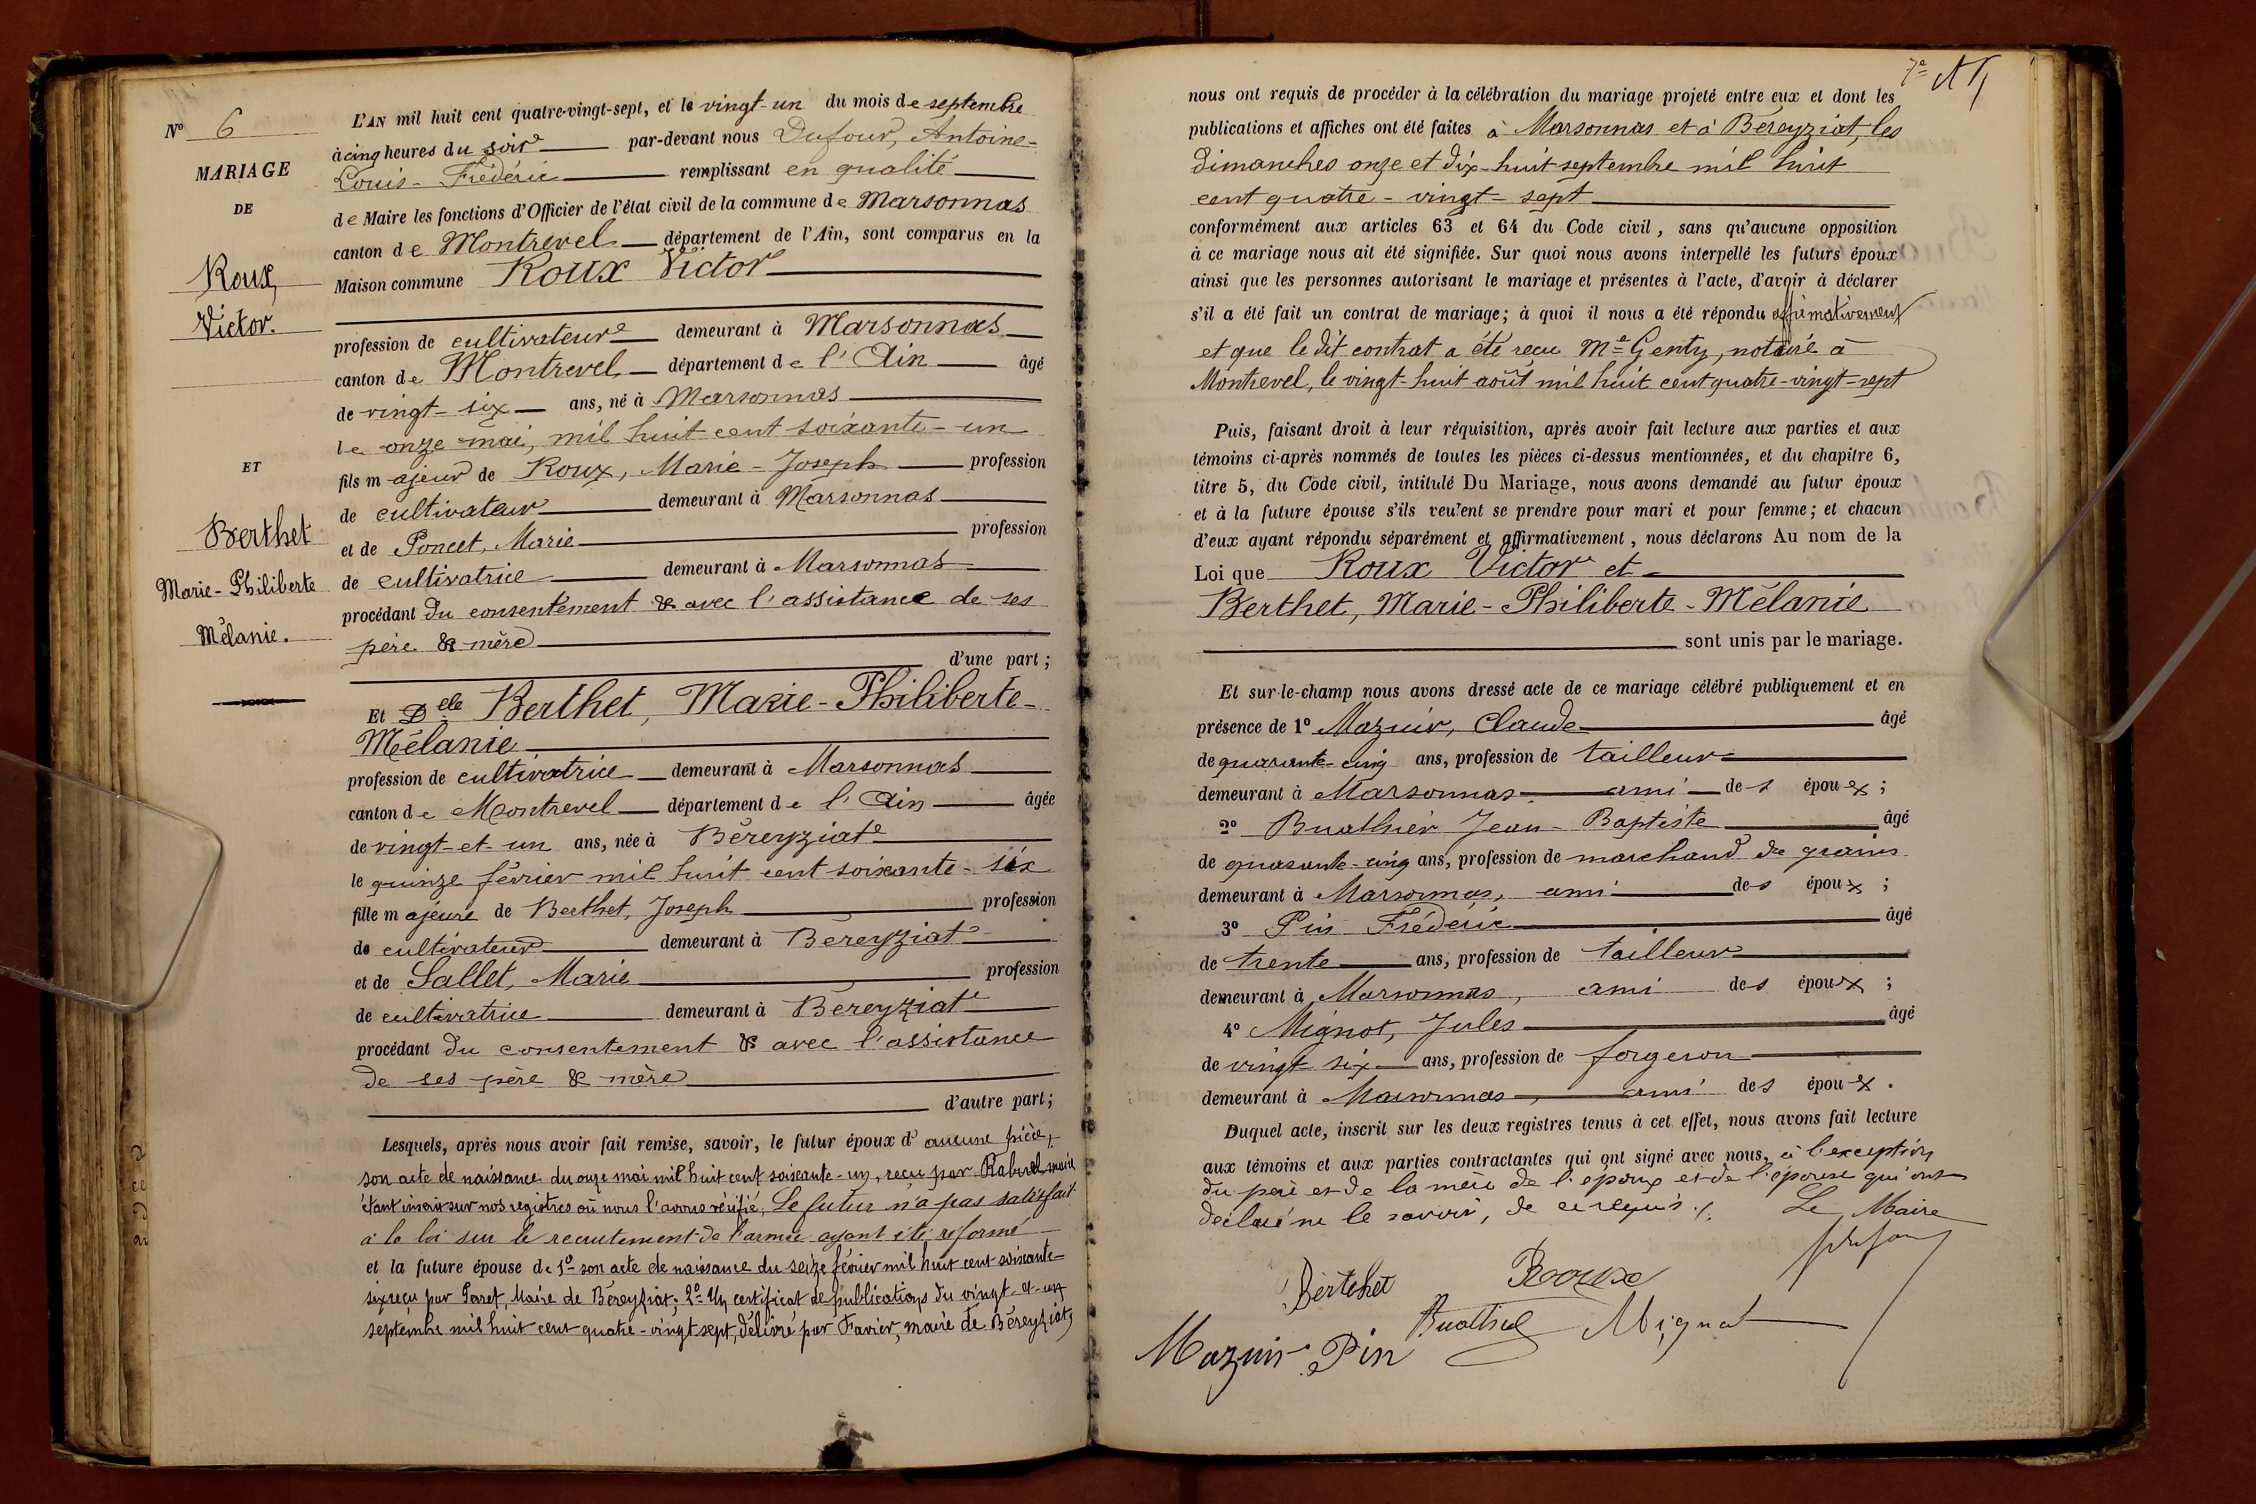 N° 6
MARIAGE
DE
Roux,
Victor.
ET
Berthet
Marie-Philiberte
Mélanie.
L'AN mil huit cent quatre-vingt-sept, et le vingt-un du mois de septembre
à cinq heures du soir par-devant nous Dufour, Antoine-
Louis-Frédéric remplissant en qualité
de Maire les fonctions d'Officier de l'état civil de la commune de Marsonnas
canton de Montrevel département de l'Ain, sont comparus en la
Maison commune Roux Victor
profession de cultivateur demeurant à Marsonnas
canton de Montrevel département de l'Ain âgé
de vingt-six ans, né à Marsonnas
le onze mai, mil huit cent soixante-un
fils majeur de Roux, Marie-Joseph profession
de cultivateur demeurant à Marsonnas
et de Poncet, Marie profession
de cultivatrice demeurant à Marsonnas
procédant du consentement & avec l'assistance de ses
père & mère
d'une part;
Et Delle Berthet, Marie-Philiberte-
Mélanie
profession de cultivatrice demeurant à Marsonnas
canton de Montrevel département de l'Ain âgée
de vingt-et-un ans, née à Béreyziat
le quinze février mil huit cent soixante-six
fille majeure de Berthet, Joseph profession
de cultivateur demeurant à Béreyziat
et de Sallet, Marie profession
de cultivatrice demeurant à Béreyziat
procédant du consentement & avec l'assistance
de ses père & mère
d'autre part;
Lesquels, après nous avoir fait remise, savoir, le futur époux d'aucune pièce,
son acte de naissance du onze mai mil huit cent soixante-un, reçu par maire
étant inscrit sur nos registres où nous l'avons vérifié, Le futur n'a pas satisfait
à la loi sur le recrutement de l'armée ayant été réformé
et la future épouse de 1° son acte de naissance du seize février mil huit cent soixante-
six reçu par Maire de Béreyziat; 2° Un certificat de publications du vingt-et-un
septembre mil huit cent quatre-vingt sept, délivré par Favier, maire de Béreyziat,
7e
nous ont requis de procéder à la célébration du mariage projeté entre eux et dont les
publications et affiches ont été faites à Marsonnas et à Béreyziat, les
dimanches onze et dix-huit septembre mil huit
cent quatre-vingt-sept
conformément aux articles 63 et 64 du Code civil, sans qu'aucune opposition
à ce mariage nous ait été signifiée. Sur quoi nous avons interpellé les futurs époux
ainsi que les personnes autorisant le mariage et présentes à l'acte, d'avoir à déclarer
s'il a été fait un contrat de mariage; à quoi il nous a été répondu affirmativement
et que le dit contrat a été reçu Me Genty, notaire à
Montrevel, le vingt-huit août mil huit cent quatre-vingt-sept
Puis, faisant droit à leur réquisition, après avoir fait lecture aux parties et aux
témoins ci-après nommés de toutes les pièces ci-dessus mentionnées, et du chapitre 6,
titre 5, du Code civil, intitulé Du Mariage, nous avons demandé au futur époux
et à la future épouse s'ils veulent se prendre pour mari et pour femme; et chacun
d'eux ayant répondu séparément et affirmativement, nous déclarons Au nom de la
Loi que Roux Victor et
Berthet, Marie-Philiberte-Mélanie
sont unis par le mariage.
Et sur-le-champ nous avons dressé acte de ce mariage célébré publiquement et en
présence de 1° Mazuir, Claude âgé
de quarante-cinq ans, profession de tailleur
demeurant à Marsonnas ami des époux;
2° Buathier Jean-Baptiste âgé
de quarante-cinq ans, profession de marchand de grains
demeurant à Marsonnas, ami des époux;
3° Pin Frédéric âgé
de trente ans, profession de tailleur
demeurant à Marsonnas, ami des époux;
4° Mignot, Jules âgé
de vingt six ans, profession de forgeron
demeurant à Marsonnas, ami des époux.
Duquel acte, inscrit sur les deux registres tenus à cet effet, nous avons fait lecture
aux témoins et aux parties contractantes qui ont signé avec nous, à l'exception
du père et de la mère de l'époux et de l'épouse qui ont
déclaré ne le savoir, de ce requis. Le Maire
Dufour
Berthet Roux
Buathier Mignot
Mazuir Pin